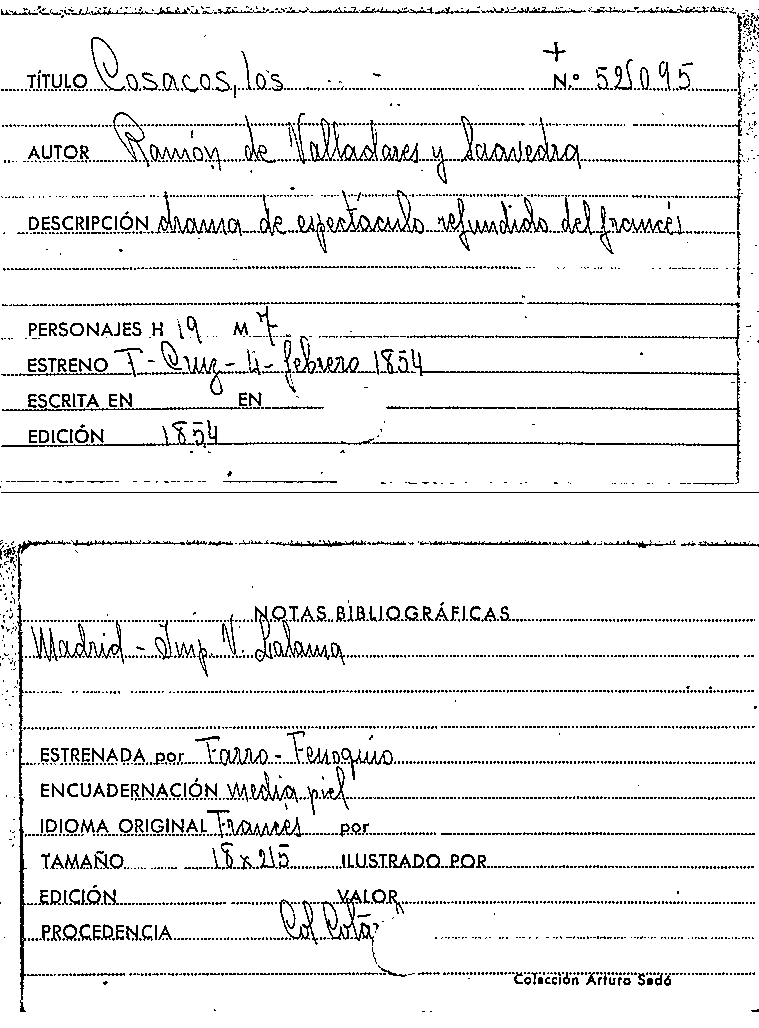 TÍTULO Cosacos, los
+
N.º 525095
AUTOR Ramón de Valladares y Saavedra
DESCRIPCIÓN drama de espectáculo refundido del francés
PERSONAJES H 19 M 7
ESTRENO T- Cruz - 4 - febrero 1854
ESCRITA EN EN
EDICIÓN 1854
NOTAS BIBLIOGRÁFICAS
Madrid - Imp. V. Lalama
ESTRENADA por Farro -
ENCUADERNACIÓN media piel
IDIOMA ORIGINAL Francés por
TAMAÑO 18 x 215 ILUSTRADO POR
EDICIÓN VALOR
PROCEDENCIA Col
Colección Arturo Sedó